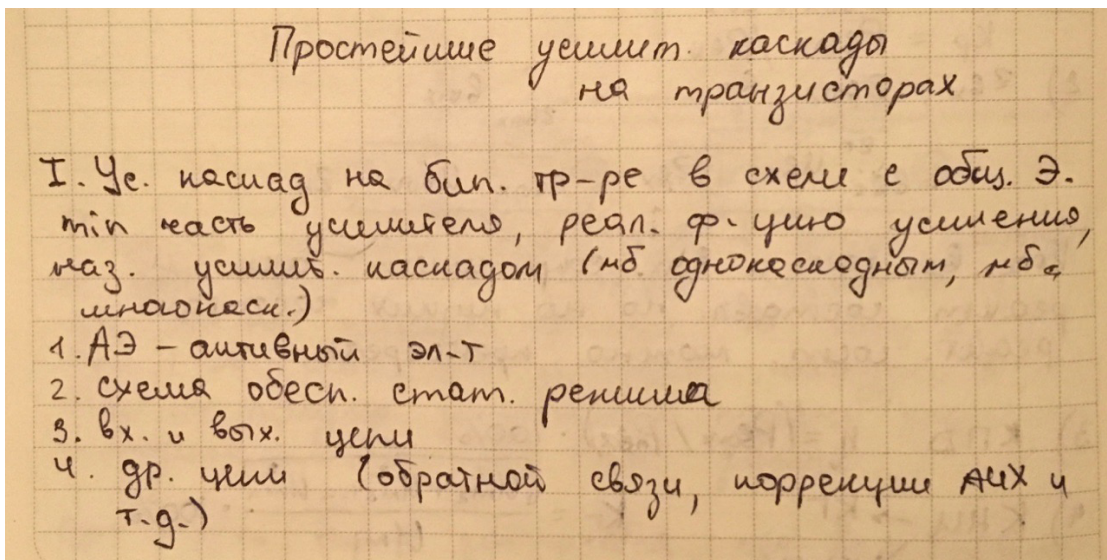 Простейшие усилит. каскады
на транзисторах
I. Ус. каскад на бип. тр-ре в схеме с общ. Э.
min часть усилителя, реал. ф-цию усиления,
наз. усилит. каскадом (мб однокаскадным, мб
многокаск.)
1. АЭ – активный эл-т
2. схема обесп. стат. режима
3. вх. и вых. цепи
4. др. цепи (обратной связи, коррекции АЧХ и
т.д.)